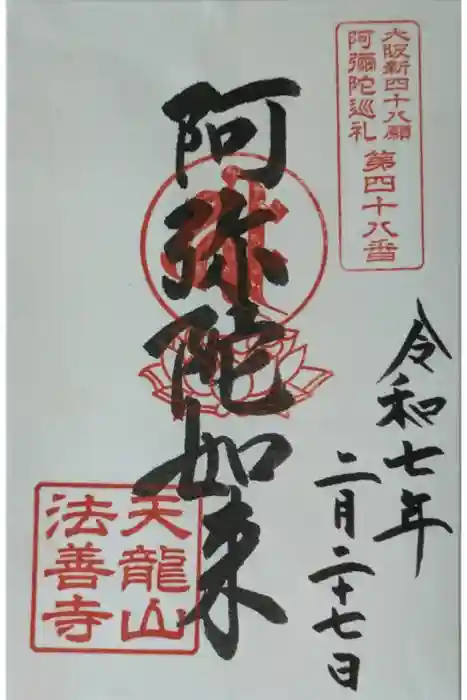 大阪新四十八願
阿彌陀巡礼 第四十八番
令和七年
二月二十七日
阿弥陀如来
天龍山
法善寺